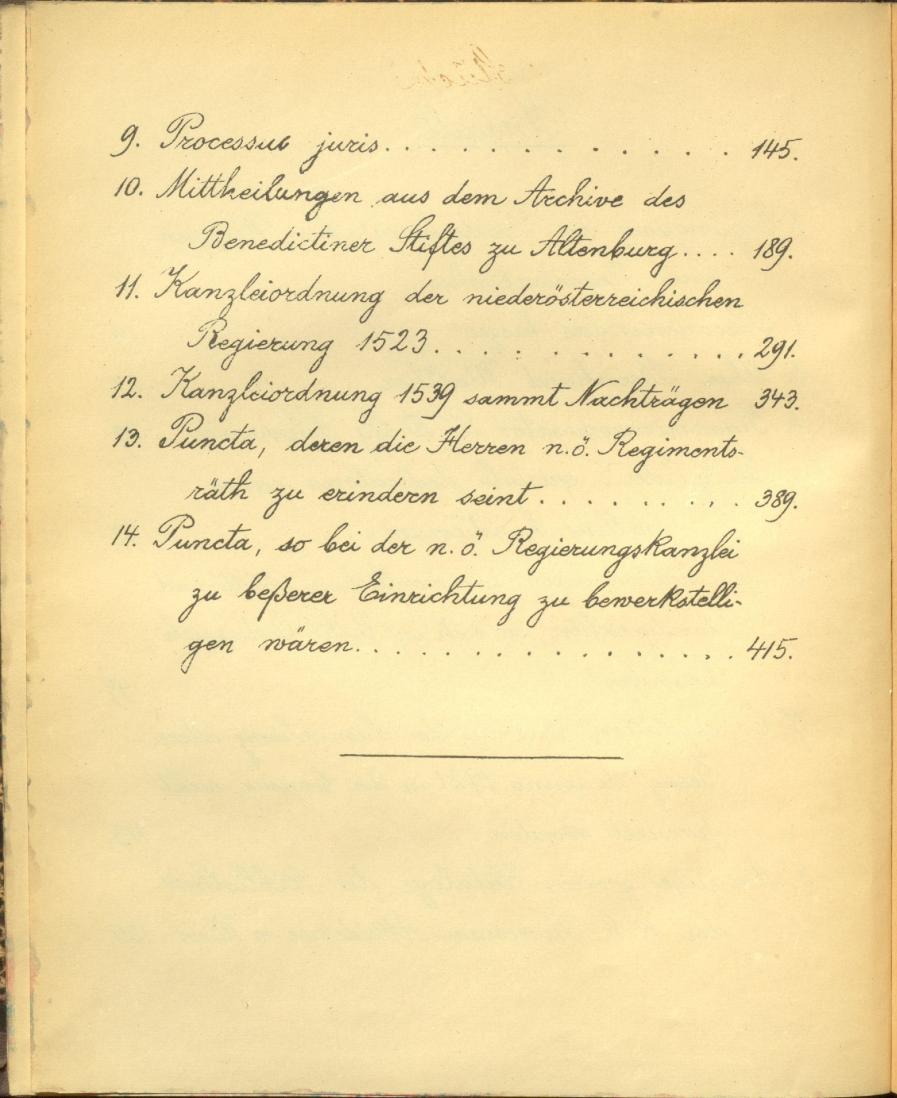 9. Processus juris. . . . . . . . . . . . . . 145.
10. Mittheilungen aus dem Archive des
Benedictiner Stiftes zu Altenburg. . . . 189.
11. Kanzleiordnung der niederösterreichischen
Regierung 1523. . . . . . . . . . . . . . 291.
12. Kanzleiordnung 1539 sammt Nachträgen 343.
13. Puncta, deren die Herren n.ö. Regiments-
räth zu erindern seint. . . . . . . . . . 389.
14. Puncta, so bei der n.ö. Regierungskanzlei
zu beßerer Einrichtung zu bewerkstelli-
gen wären. . . . . . . . . . . . . . . . . 415.